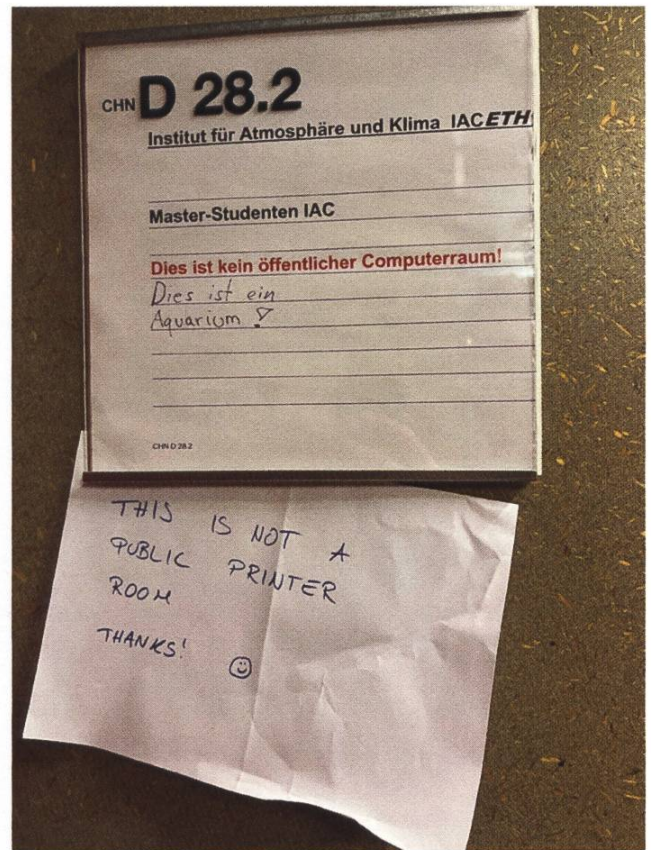 CHN D 28.2
Institut für Atmosphäre und Klima IACETH
Master-Studenten IAC
Dies ist kein öffentlicher Computerraum!
Dies ist ein
Aquarium !
CHN D 28.2
THIS IS NOT A
PUBLIC PRINTER
ROOM
THANKS! ☺